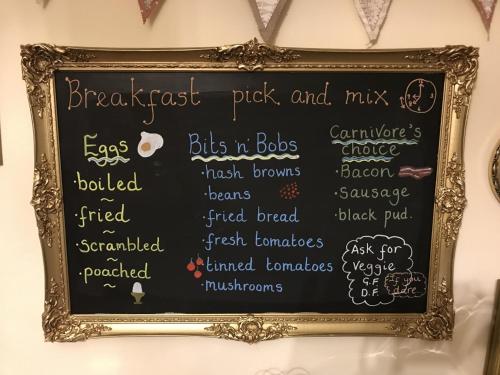 Breakfast pick and mix
Eggs
·boiled
~
·fried
~
·scrambled
~
·poached
~
Bits 'n' Bobs
·hash browns
·beans
·fried bread
·fresh tomatoes
·tinned tomatoes
·mushrooms
Carnivore's
Choice
·Bacon
·Sausage
·black pud.
Ask for
Veggie
G.F
D.F.
if you
dare